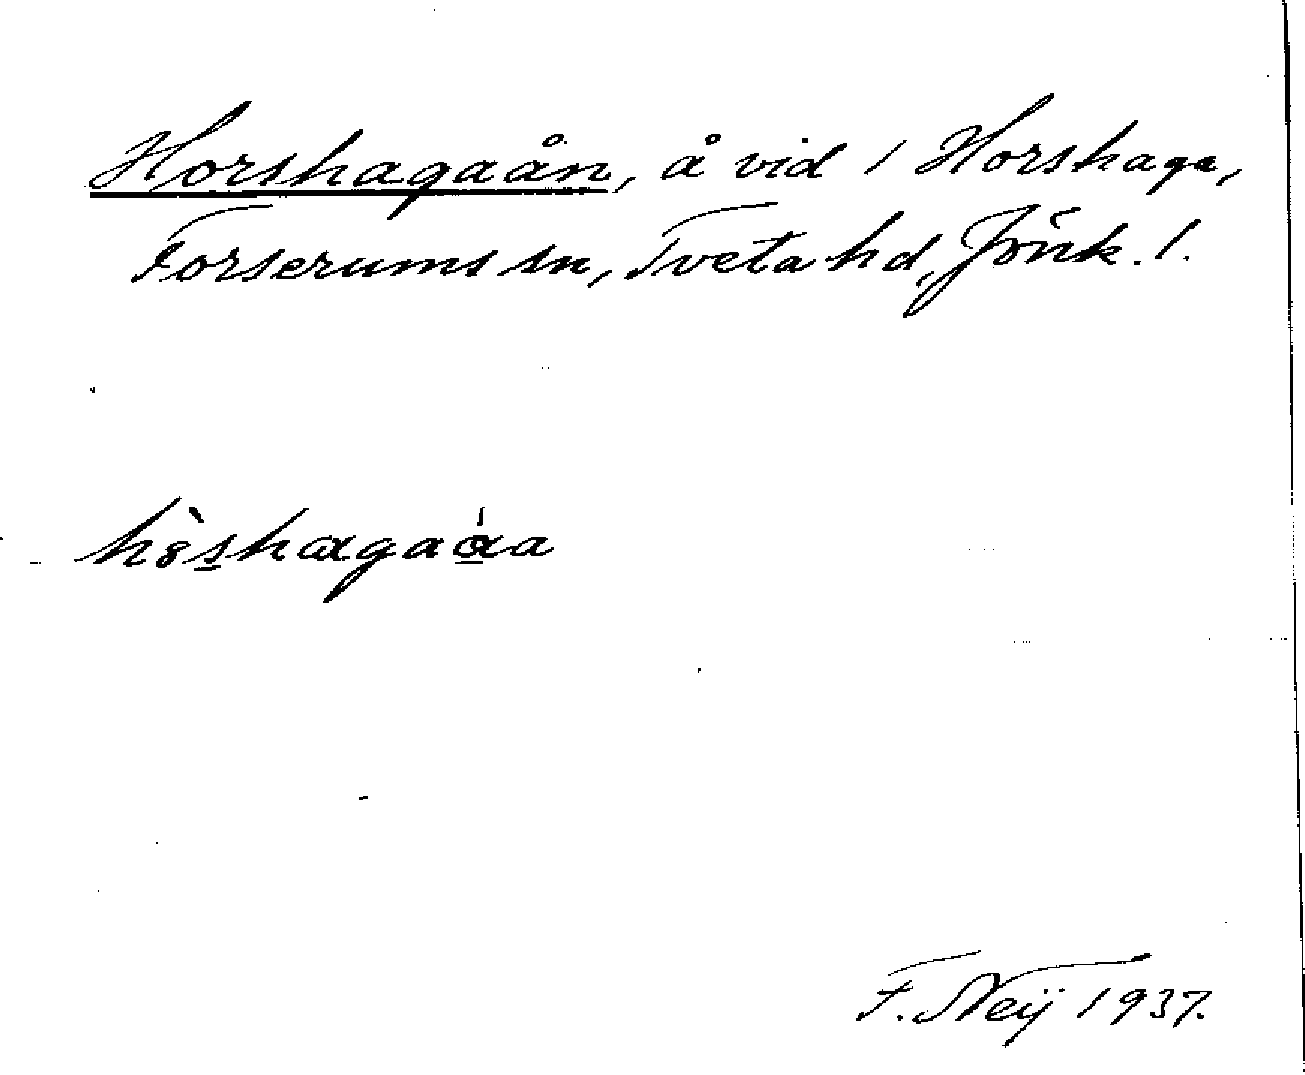 Horshagaån, å vid 1 Horshaga,
Forserums sn, Tveta hd, Jönk. l.
F. Neij 1937.